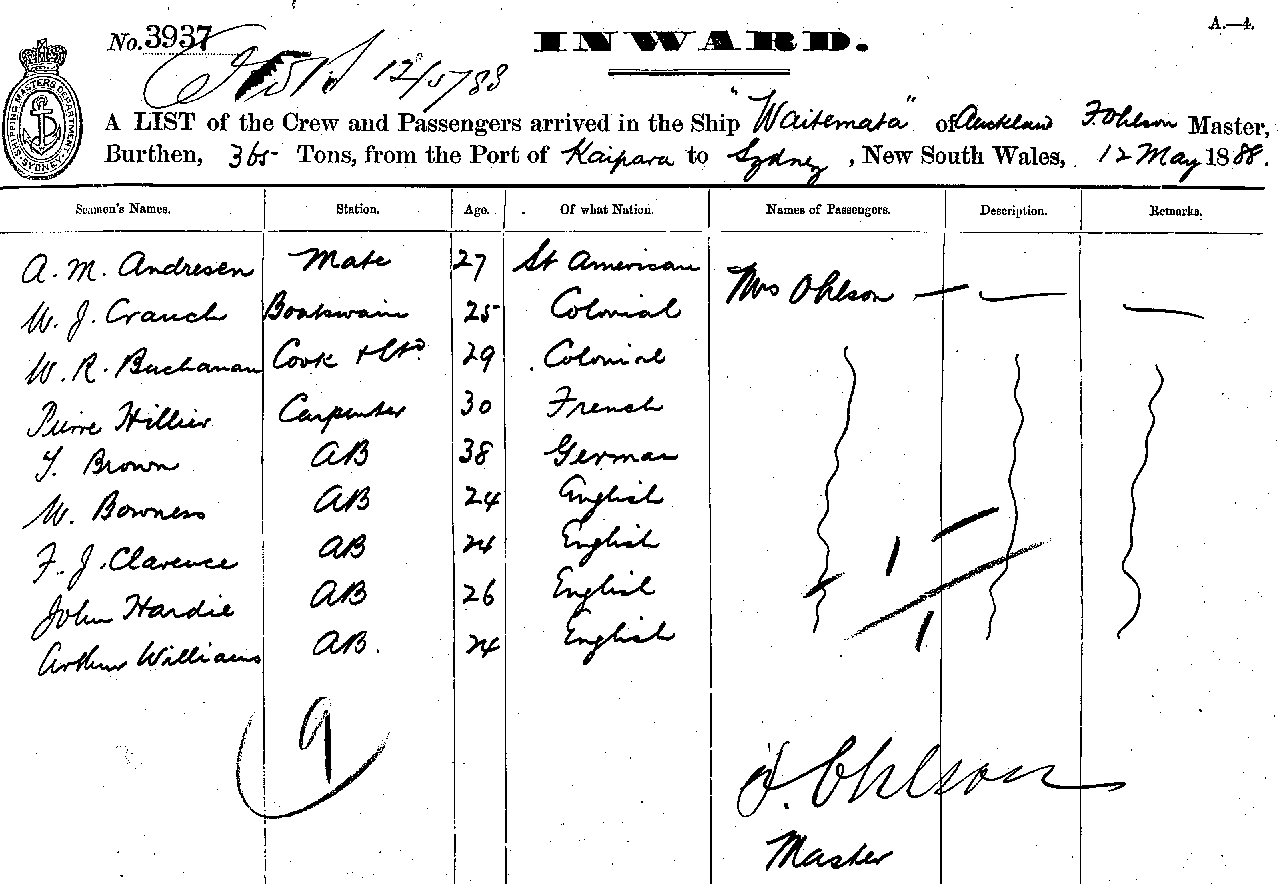 A.—4.
No. 3937
INWARD.
12/5/88
SHIPPING MASTERS DEPARTMENT SYDNEY
A LIST of the Crew and Passengers arrived in the Ship "Waitemata" of Auckland F. Ohlson Master,
Burthen, 365 Tons, from the Port of Kaipara to Sydney, New South Wales, 12 May 1888.
Seamen's Names. Station. Age. Of what Nation. Names of Passengers. Description. Remarks.
A. M. Andresen Mate 27 St American Mrs Ohlson — — —
W. J. Crauch Boatswain 25 Colonial
W. R. Buchanan Cook & Std 29 Colonial
Pierre Hillier Carpenter 30 French
T. Brown AB 38 German
W. Bowness AB 24 English
F. J. Clarence AB 24 English
John Hardie AB 26 English
Arthur Williams AB. 24 English
1
1
9
F. Ohlson
Master